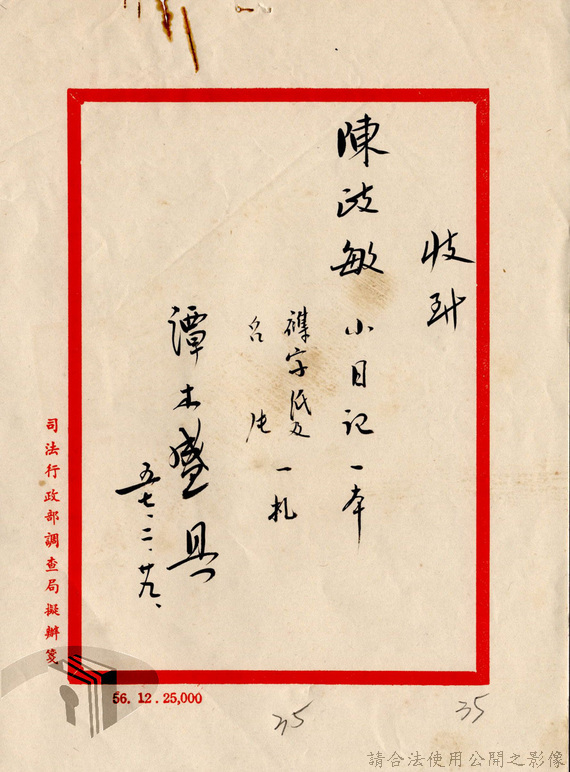 收
陳政敏 小日記一本
襍字紙及
名片 一札
譚木盛 具
五七、二、廿九、
司法行政部調查局擬辦箋
56. 12. 25,000
35
35
請合法使用公開之影像